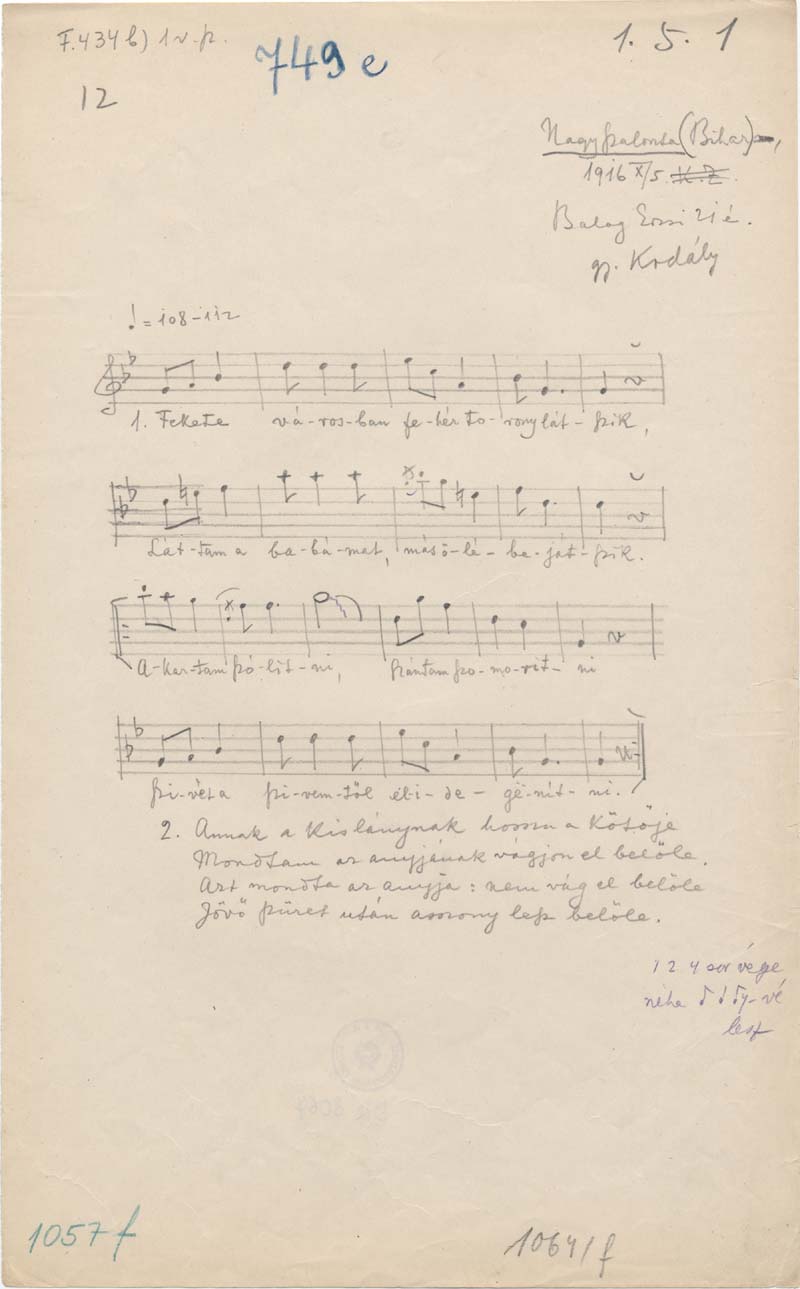 F.434 b) 1 v. p.
749 e
1. 5. 1
12
Nagyszalonta (Bihar),
1916 X/5. K. Z.
Balog Erzsi 21 é.
gy. Kodály
= 108–112
1. Fekete vá-ros-ban fe-hér to-rony lát-szik,
Lát-tam a ba-bá-mat, más ö-lé-be ját-szik.
A-kar-tam szó-lít-ni, szántam szo-mo-rít-ni
szi-vét a szi-vem-től el-i-de-gë-nít-ni.
2. Annak a kislánynak hosszu a kötője
Mondtam az anyjának vágjon el belőle.
Azt mondta az anyja: nem vág el belőle
Jövő szüret után asszony lesz belőle.
1 2 4 sor vége
néha -vé
lesz
1057 f
1064/f